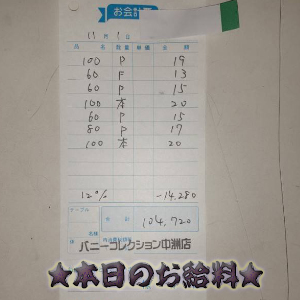 お会計
11月1日
品名 数量 単価 金額
100 P 19
60 P 13
60 P 15
100 本 20
60 P 15
80 P 17
100 本 20
12% -14.280
テーブル
合計 104,720
名様
バニーコレクション中洲店
★本日のお給料★